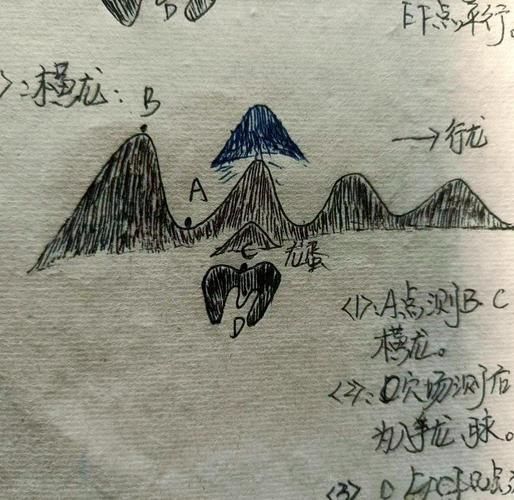 D
EF点平行。
>:横龙:
B
→行龙
A
C
龙虿
D
<1>:A点测B、C
横龙。
<2>:D穴场测后
为入手龙、脉。
<3>